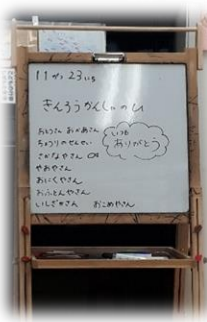 11がつ23にち
きんろうかんしゃのひ
おとうさん おかあさん
ちゅうりのせんせい
さかなやさん
やおやさん
おにくやさん
おふとんやさん
いしざかさん おこめやさん
いつも
ありがとう